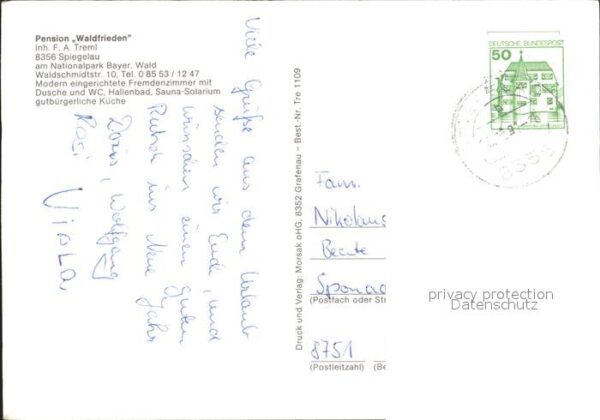 Pension „Waldfrieden"
Inh. F. A. Treml
8356 Spiegelau
am Nationalpark Bayer. Wald
Waldschmidtstr. 10, Tel. 0 85 53 / 12 47
Modern eingerichtete Fremdenzimmer mit
Dusche und WC, Hallenbad, Sauna-Solarium
gutbürgerliche Küche
Viele Grüße aus dem Urlaub
senden wir Euch, und
wünschen einen Guten
Rutsch ins Neue Jahr
Doris, Wolfgang
Rosi
Viola
Druck und Verlag: Morsak oHG, 8352 Grafenau – Best.-Nr. Tre 1109
DEUTSCHE BUNDESPOST
50
Fam.
Nikolaus
Beate
(Postfach oder Str
8751
(Postleitzahl) (Be
privacy protection
Datenschutz